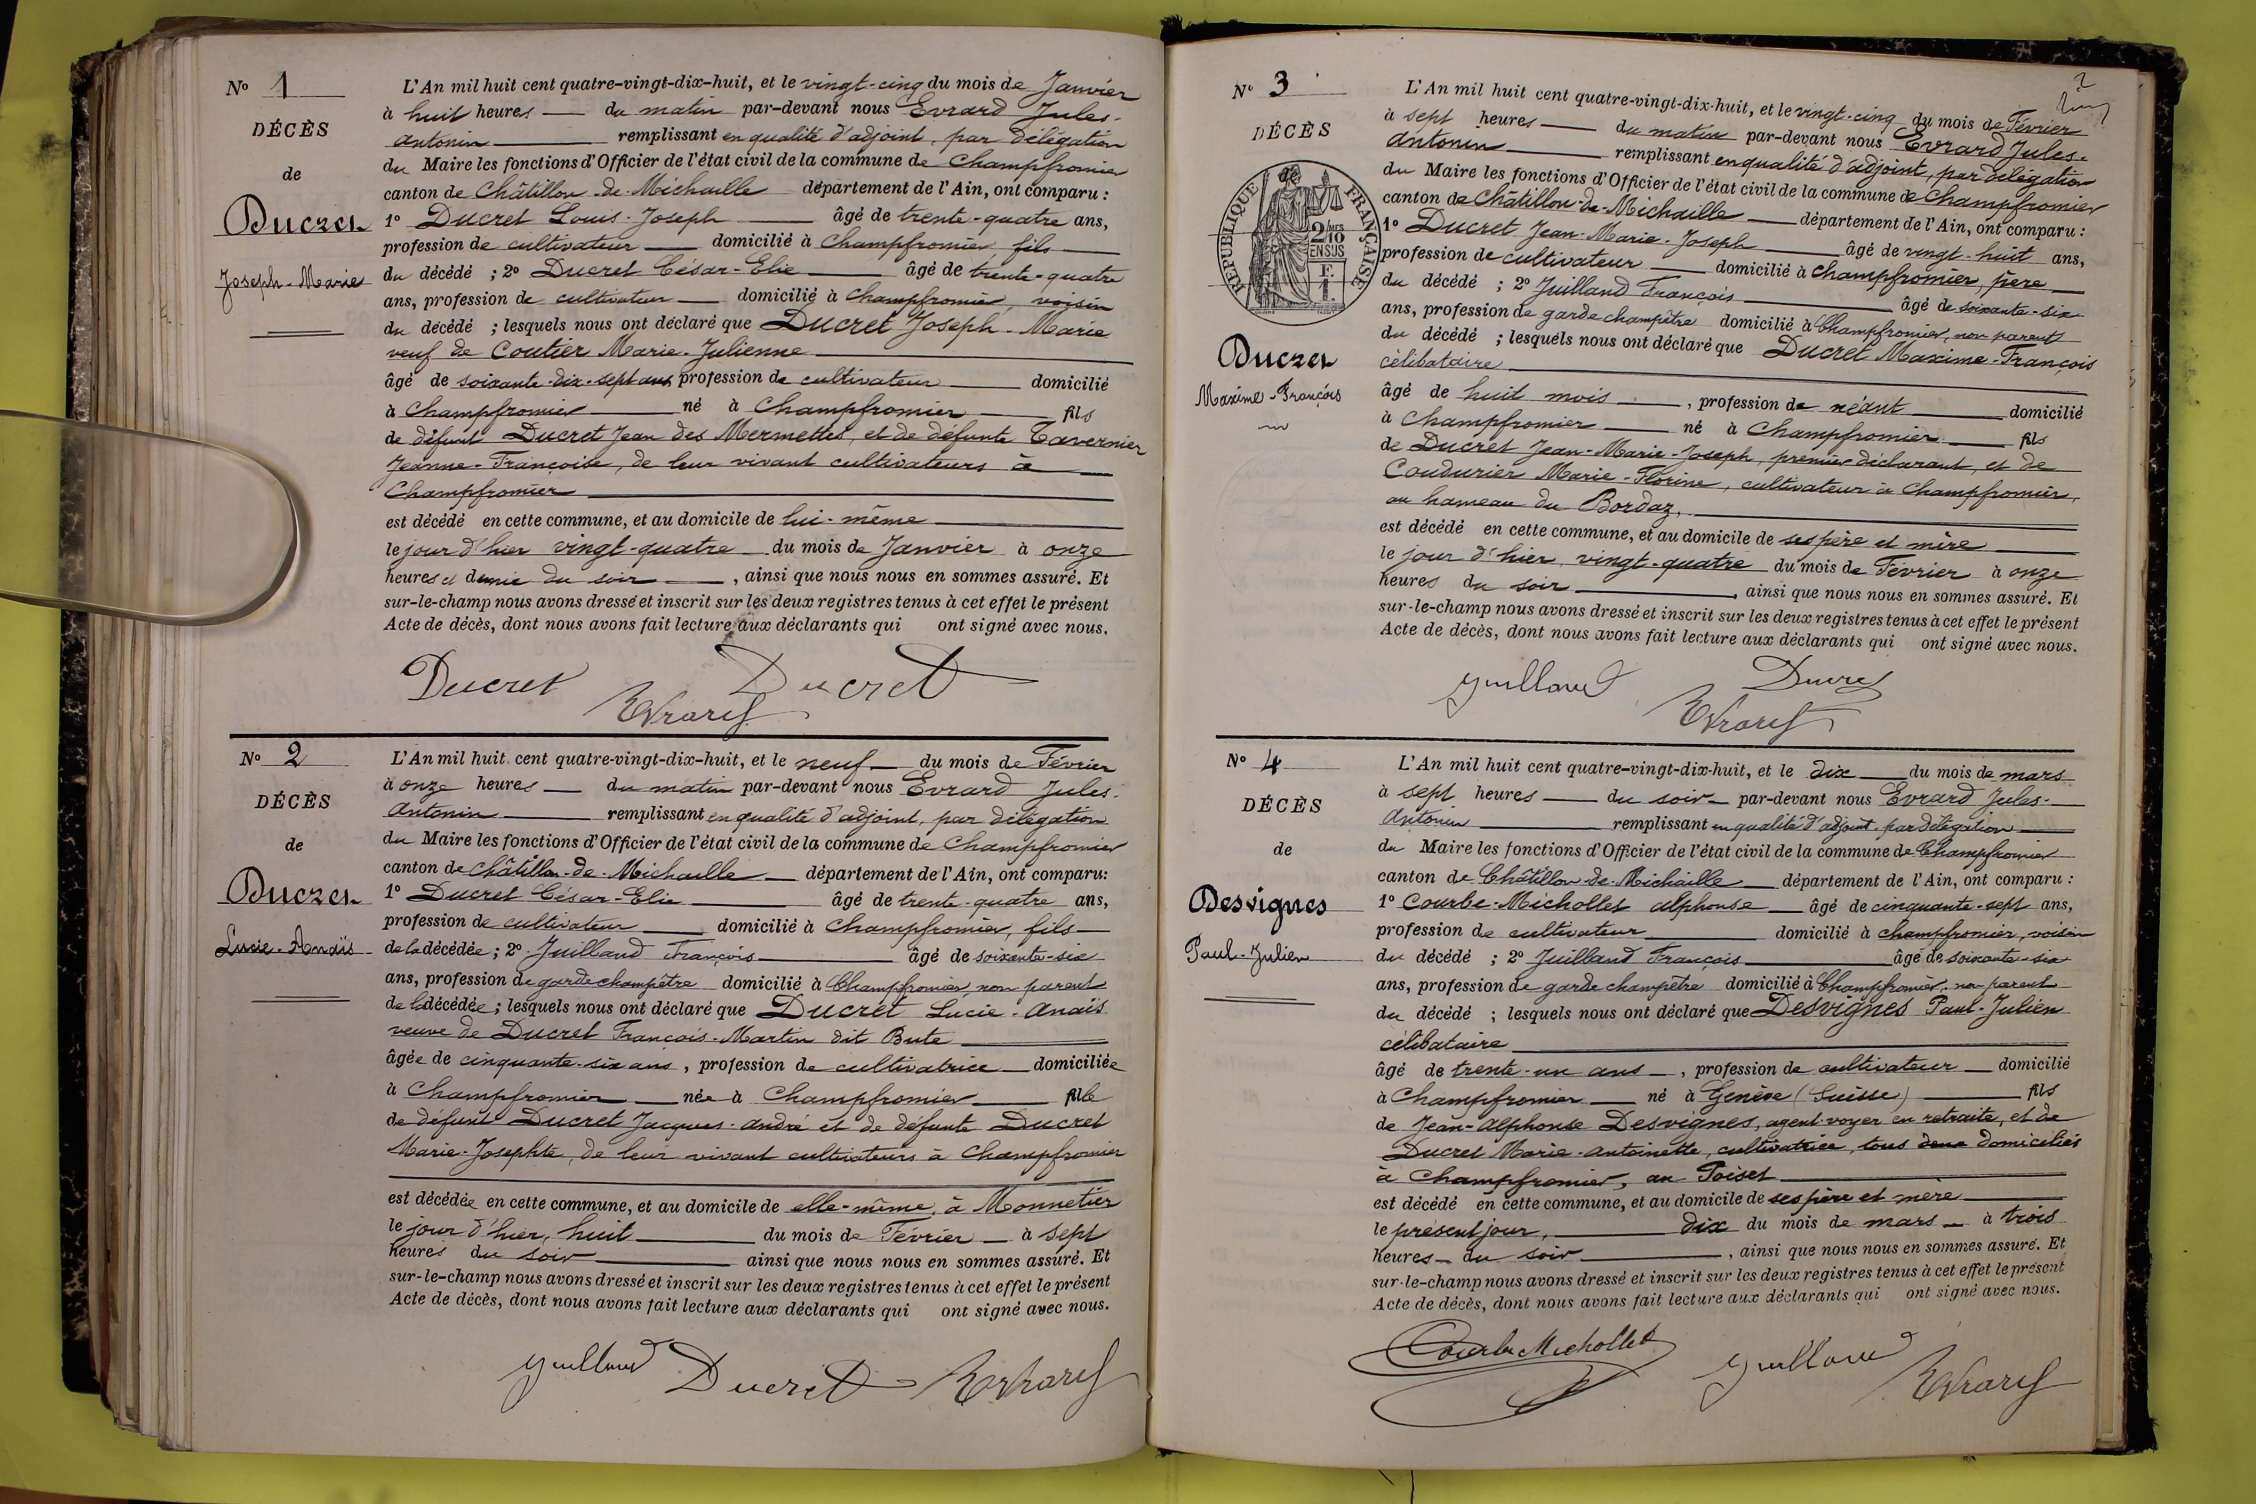 Nº 1
DÉCÈS
de
Ducret
Joseph-Marie
L'An mil huit cent quatre-vingt-dix-huit, et le vingt-cinq du mois de Janvier
à huit heures — du matin par-devant nous Evrard Jules-
Antonin — remplissant en qualité d'adjoint, par délégation
du Maire les fonctions d'Officier de l'état civil de la commune de Champfromier
canton de Châtillon-de-Michaille département de l'Ain, ont comparu :
1º Ducret Louis-Joseph — âgé de trente-quatre ans,
profession de cultivateur — domicilié à Champfromier, fils
du décédé ; 2º Ducret César-Elie — âgé de trente-quatre
ans, profession de cultivateur — domicilié à Champfromier, voisin
du décédé ; lesquels nous ont déclaré que Ducret Joseph-Marie
veuf de Coutier Marie-Julienne —
âgé de soixante-dix-sept ans, profession de cultivateur — domicilié
à Champfromier — né à Champfromier — fils
de défunt Ducret Jean des Mermettes, et de défunte Tavernier
Jeanne-Françoise, de leur vivant cultivateurs à
Champfromier —
est décédé en cette commune, et au domicile de lui-même —
le jour d'hier vingt-quatre du mois de Janvier à onze
heures et demie du soir —, ainsi que nous nous en sommes assuré. Et
sur-le-champ nous avons dressé et inscrit sur les deux registres tenus à cet effet le présent
Acte de décès, dont nous avons fait lecture aux déclarants qui ont signé avec nous.
Ducret Ducret
Evrard
Nº 2
DÉCÈS
de
Ducret
Lucie-Anaïs
L'An mil huit cent quatre-vingt-dix-huit, et le neuf — du mois de Février
à onze heures — du matin par-devant nous Evrard Jules-
Antonin — remplissant en qualité d'adjoint, par délégation
du Maire les fonctions d'Officier de l'état civil de la commune de Champfromier
canton de Châtillon-de-Michaille — département de l'Ain, ont comparu:
1º Ducret César-Elie — âgé de trente-quatre ans,
profession de cultivateur — domicilié à Champfromier, fils —
de la décédée ; 2º Juilland François — âgé de soixante-six
ans, profession de garde champêtre domicilié à Champfromier, non parent
de la décédée ; lesquels nous ont déclaré que Ducret Lucie-Anaïs
veuve de Ducret François-Martin dit Bute —
âgée de cinquante-six ans, profession de cultivatrice — domiciliée
à Champfromier — née à Champfromier — fille
de défunt Ducret Jacques-André et de défunte Ducret
Marie-Josephte, de leur vivant cultivateurs à Champfromier
est décédée en cette commune, et au domicile de elle-même, à Monnetier
le jour d'hier, huit — du mois de Février — à sept
heures du soir — ainsi que nous nous en sommes assuré. Et
sur-le-champ nous avons dressé et inscrit sur les deux registres tenus à cet effet le présent
Acte de décès, dont nous avons fait lecture aux déclarants qui ont signé avec nous.
Juilland Ducret Evrard
2
Nº 3
DÉCÈS
de
RÉPUBLIQUE FRANÇAISE
2/10
EN SUS
Ducret
Maxime-François
L'An mil huit cent quatre-vingt-dix-huit, et le vingt-cinq du mois de Février
à sept heures — du matin par-devant nous Evrard Jules-
Antonin — remplissant en qualité d'adjoint, par délégation
du Maire les fonctions d'Officier de l'état civil de la commune de Champfromier
canton de Châtillon-de-Michaille — département de l'Ain, ont comparu :
1º Ducret Jean-Marie-Joseph — âgé de vingt-huit ans,
profession de cultivateur — domicilié à Champfromier, père —
du décédé ; 2º Juilland François — âgé de soixante-six
ans, profession de garde champêtre domicilié à Champfromier, non parent
du décédé ; lesquels nous ont déclaré que Ducret Maxime-François
célibataire —
âgé de huit mois —, profession de néant — domicilié
à Champfromier — né à Champfromier — fils
de Ducret Jean-Marie-Joseph, premier déclarant, et de
Coudurier Marie-Florine, cultivateur à Champfromier,
au hameau du Bordaz, —
est décédé en cette commune, et au domicile de ses père et mère —
le jour d'hier, vingt-quatre du mois de Février à onze
heures du soir —, ainsi que nous nous en sommes assuré. Et
sur-le-champ nous avons dressé et inscrit sur les deux registres tenus à cet effet le présent
Acte de décès, dont nous avons fait lecture aux déclarants qui ont signé avec nous.
Juilland Ducret
Evrard
Nº 4
DÉCÈS
de
Desvignes
Paul-Julien
L'An mil huit cent quatre-vingt-dix-huit, et le dix — du mois de mars
à sept heures — du soir — par-devant nous Evrard Jules-
Antonin — remplissant en qualité d'adjoint par délégation —
du Maire les fonctions d'Officier de l'état civil de la commune de Champfromier
canton de Châtillon-de-Michaille — département de l'Ain, ont comparu :
1º Courbe-Michollet Alphonse — âgé de cinquante-sept ans,
profession de cultivateur — domicilié à Champfromier, voisin
du décédé ; 2º Juilland François — âgé de soixante-six
ans, profession de garde champêtre domicilié à Champfromier, non parent
du décédé ; lesquels nous ont déclaré que Desvignes Paul-Julien
célibataire —
âgé de trente-un ans —, profession de cultivateur — domicilié
à Champfromier — né à Genève (Suisse) — fils
de Jean-Alphonse Desvignes, agent-voyer en retraite, et de
Ducret Marie-Antoinette, cultivatrice, tous deux domiciliés
à Champfromier, au Poiset —
est décédé en cette commune, et au domicile de ses père et mère —
le présent jour, — dix du mois de mars — à trois
heures — du soir —, ainsi que nous nous en sommes assuré. Et
sur-le-champ nous avons dressé et inscrit sur les deux registres tenus à cet effet le présent
Acte de décès, dont nous avons fait lecture aux déclarants qui ont signé avec nous.
Courbe Michollet Juilland Evrard